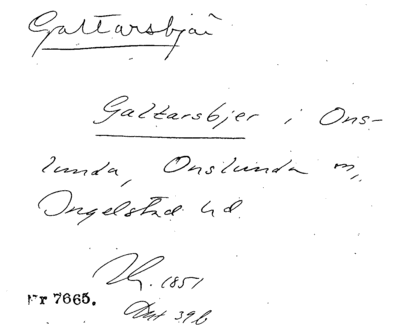 Galtarsbjär
Galtarsbjer i Ons-
lunda, Onslunda sn,
Ingelstad hd.
1851
Nr 7665.
39 b